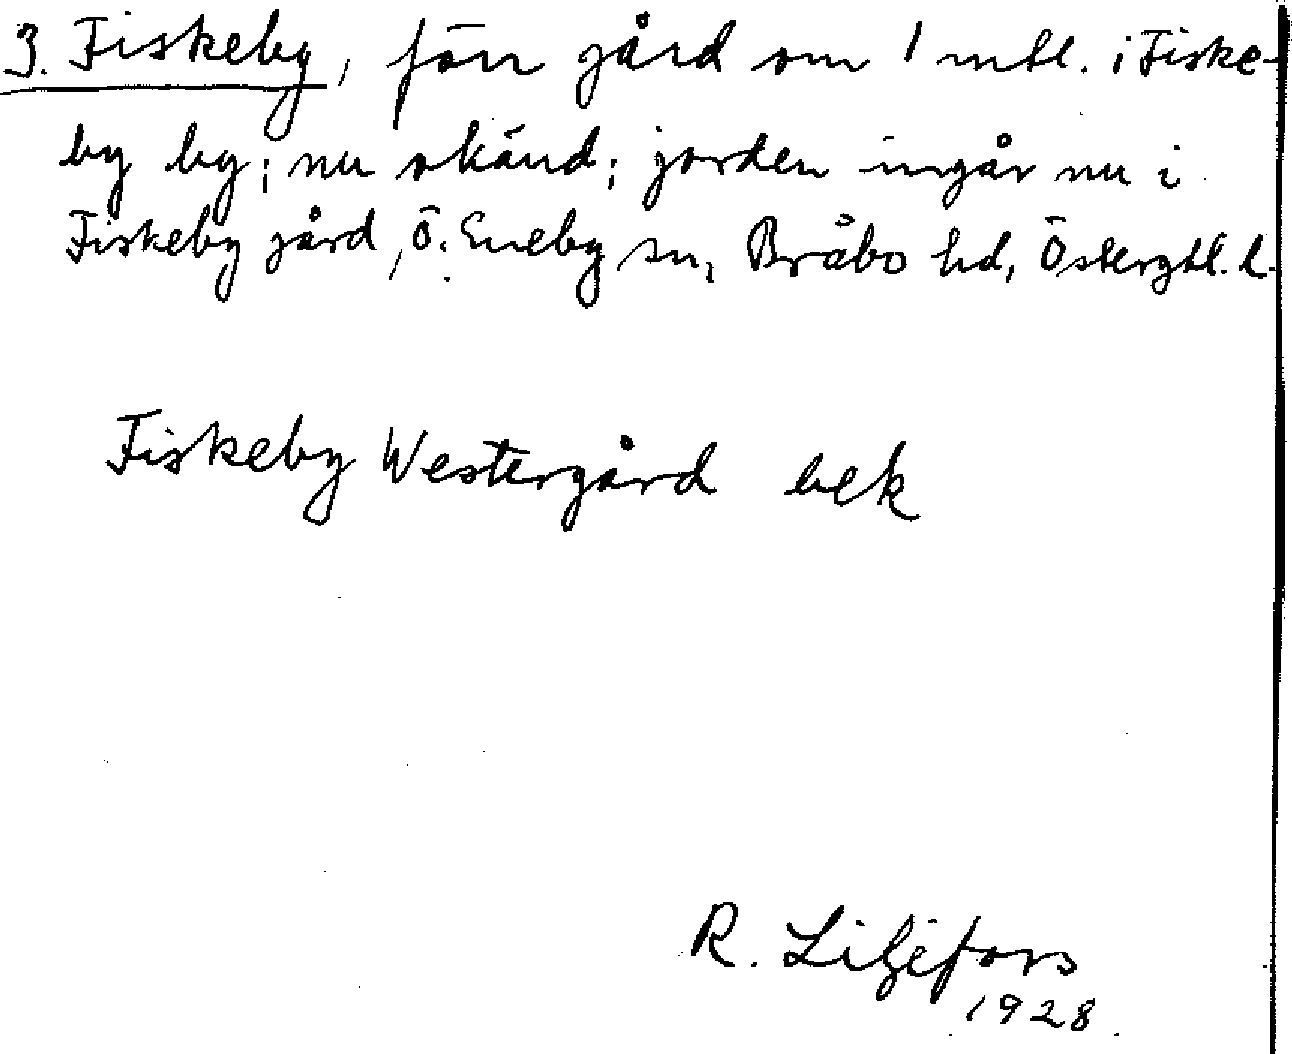 3. Fiskeby, förr gård om 1 mtl. i Fiske-
by by; nu okänd; jorden ingår nu i
Fiskeby gård, Ö. Eneby sn, Bråbo hd, Östergtl. l.
Fiskeby Westergård bek
R. Liljefors
1928.